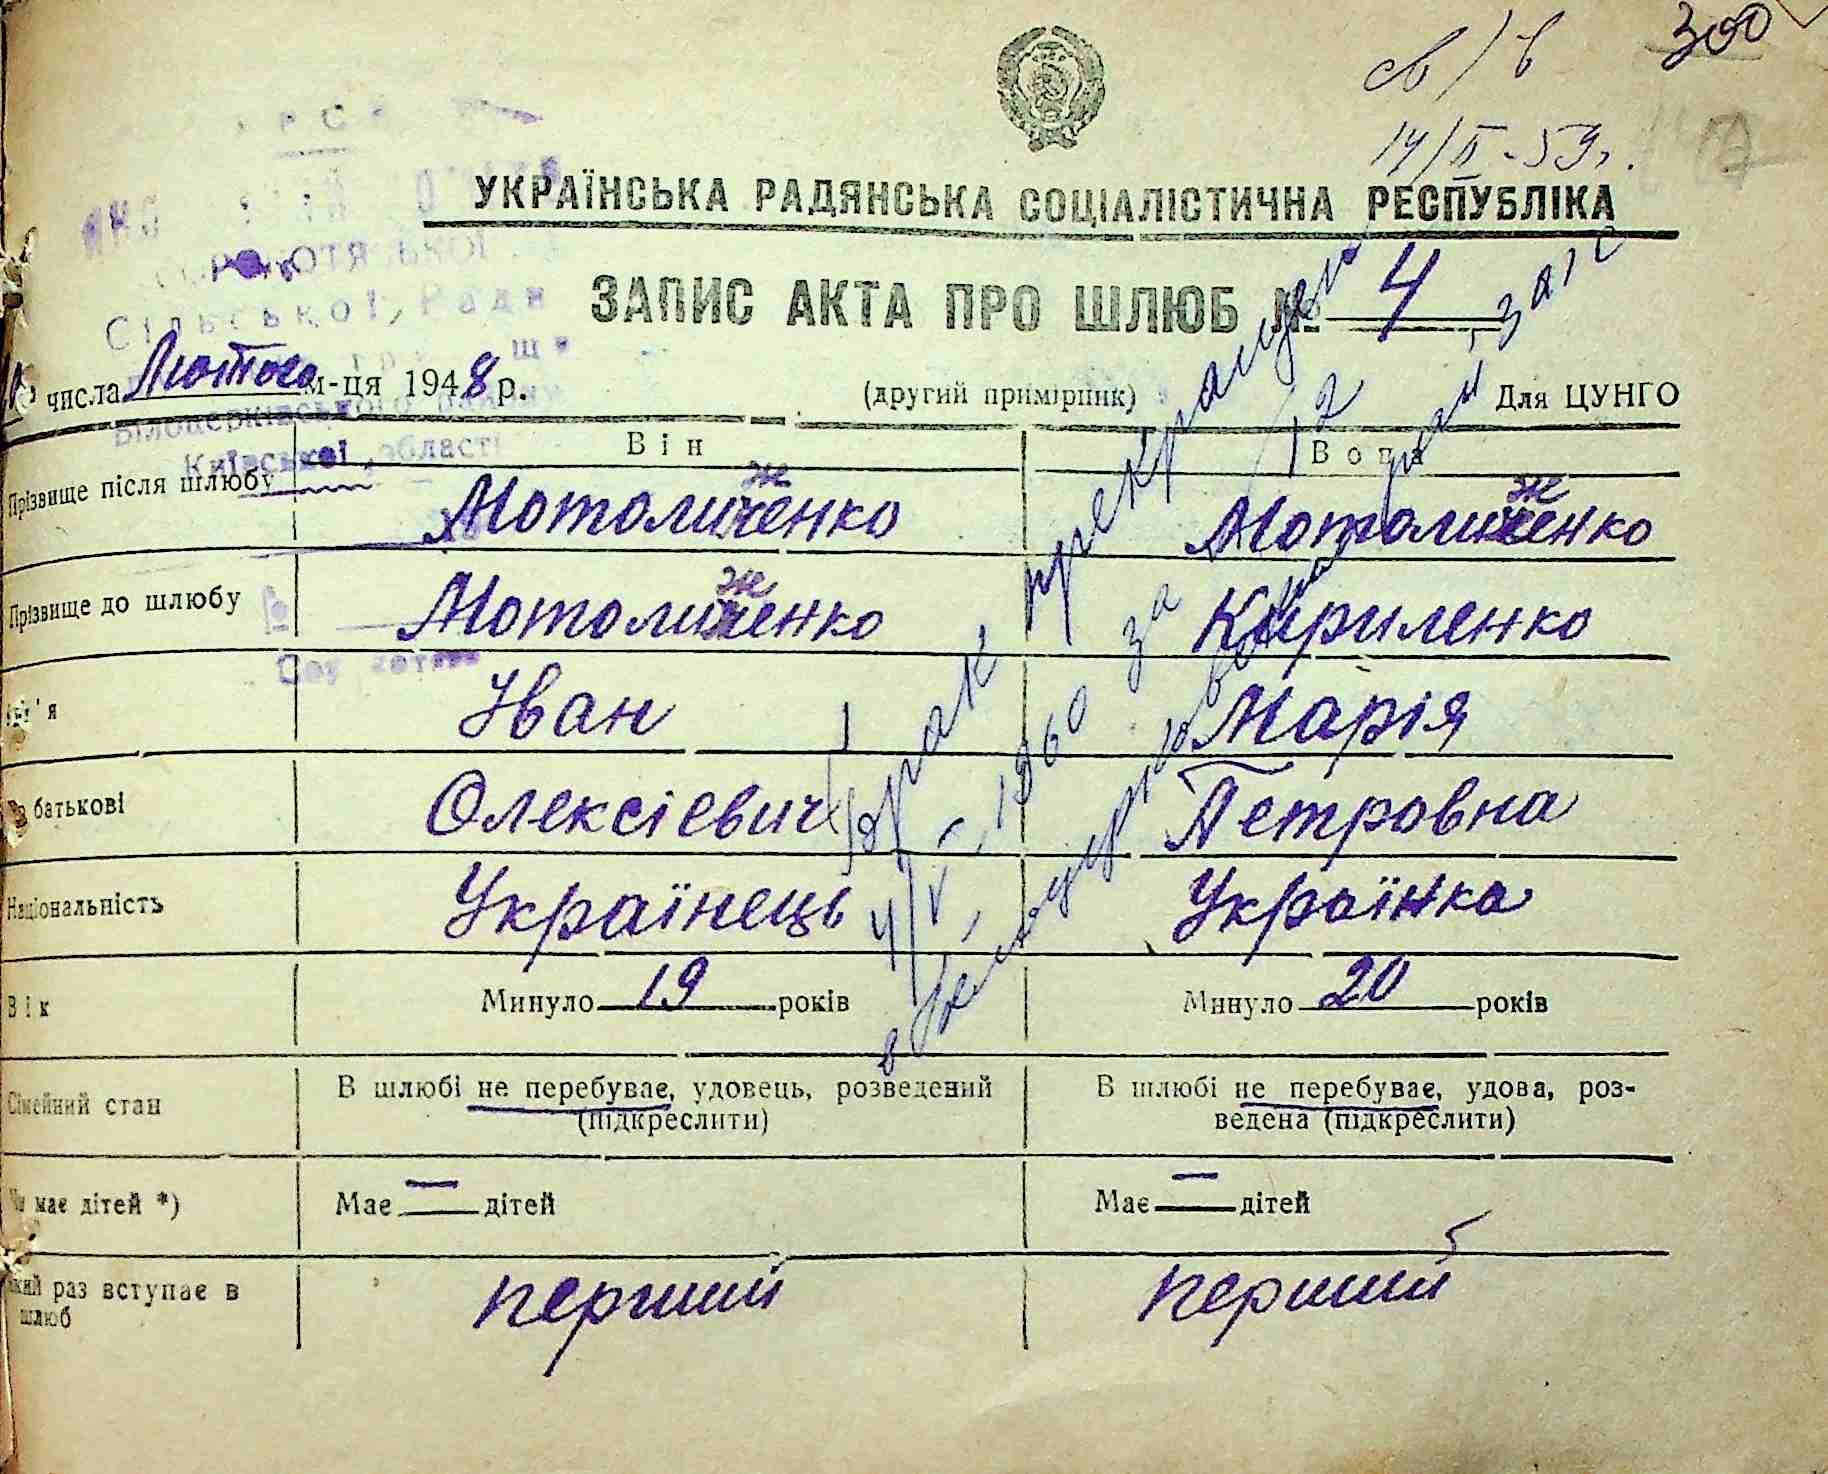 св/в 300
14/II-59г.
УКРАЇНСЬКА РАДЯНСЬКА СОЦІАЛІСТИЧНА РЕСПУБЛІКА
Сільської Ради
Білоцерківського району
Київської області
ЗАПИС АКТА ПРО ШЛЮБ № 4
числа Лютого м-ця 1948 р. (другий примірник) Для ЦУНГО
Він Вона
Прізвище після шлюбу Мотолиженко Мотолиженко
Прізвище до шлюбу Мотолиженко Кириленко
Ім'я Іван Марія
По батькові Олексієвич Петровна
Національність Українець Українка
Вік Минуло 19 років Минуло 20 років
Сімейний стан В шлюбі не перебуває, удовець, розведений (підкреслити) В шлюбі не перебуває, удова, роз-
ведена (підкреслити)
Чи має дітей *) Має — дітей Має — дітей
який раз вступає в шлюб перший перший
Брак прекращен
4/V-1960 за 12
в Белоцерковском загс